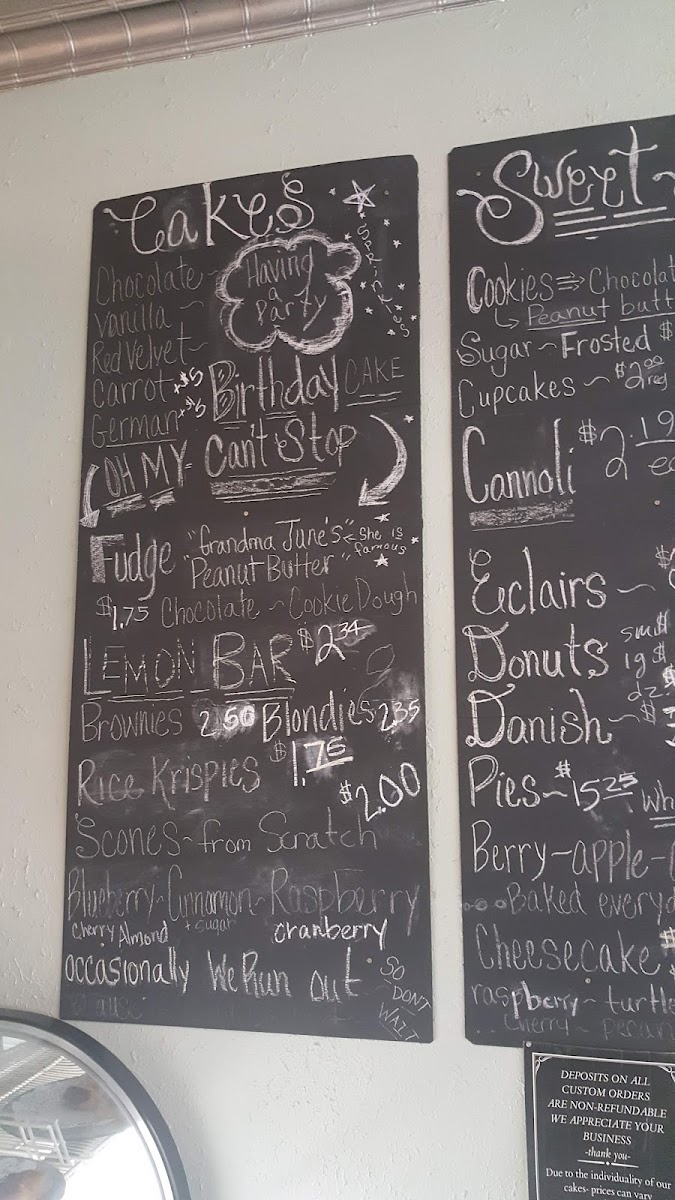 Cakes
SPRINKLES
Chocolate~
Vanilla ~
Red Velvet~
Carrot +$5
German +$5
Having
a
Party
Birthday CAKE
OH MY~ Can't Stop
Fudge "Grandma June's" < She is famous
"Peanut Butter"
$1.75 Chocolate ~ Cookie Dough
LEMON BAR $2.34
Brownies 2.50 Blondies 2.35
Rice Krispies $1.75
$2.00
Scones~from Scratch
Blueberry~Cinnamon~Raspberry
Cherry Almond + sugar cranberry
occasionally We Run out
SO DONT WAIT
Sweet
Cookies Chocolat
Peanut butt
Sugar~Frosted $
Cupcakes ~ $2.00 reg
Cannoli $2.19 ea
Eclairs ~
Donuts sm $
lg $
dz $
Danish~ $
Pies~$15.25 Wh
Berry~apple~
Baked everyd
Cheesecake
raspberry~turtle
cherry~pecan
DEPOSITS ON ALL
CUSTOM ORDERS
ARE NON-REFUNDABLE
WE APPRECIATE YOUR
BUSINESS
-thank you-
Due to the individuality of our
cakes- prices can vary